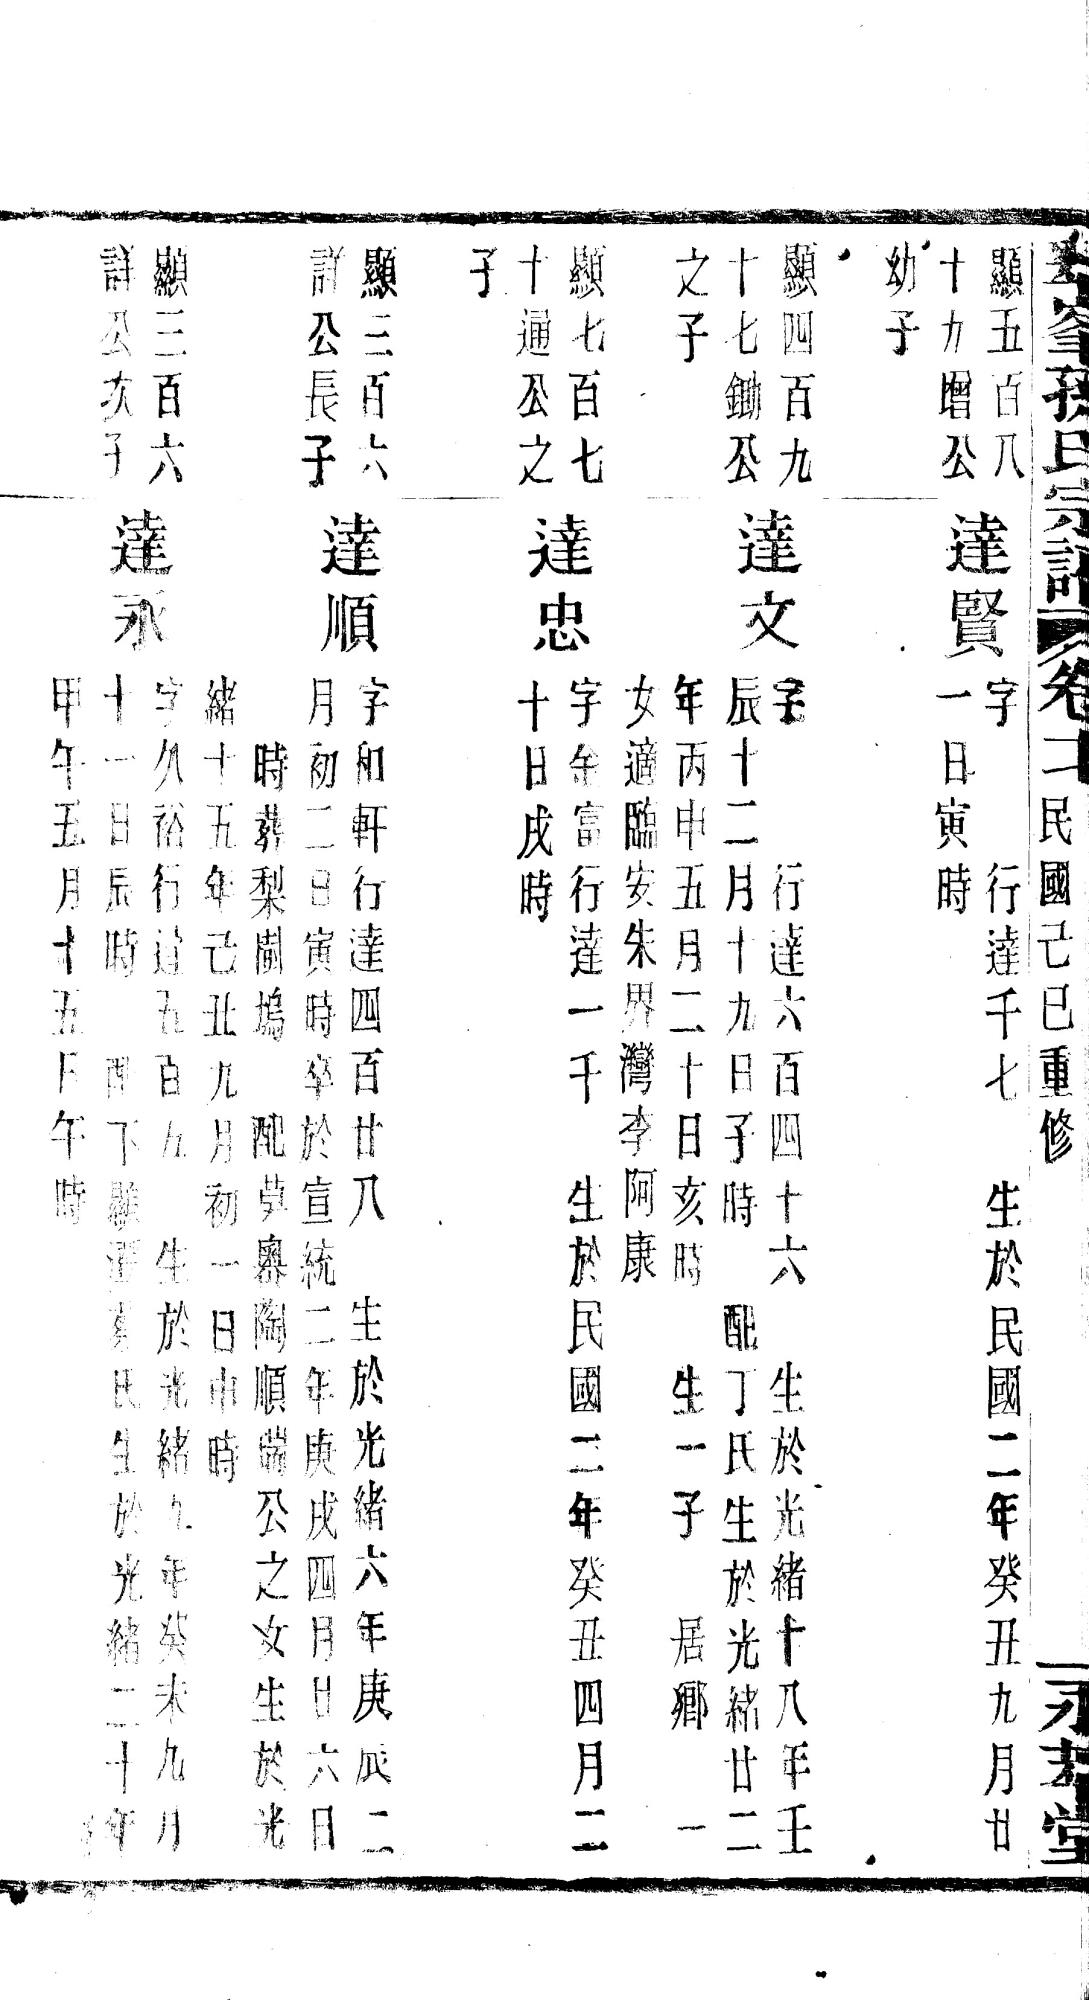 峯孫氏宗譜 卷 民國己巳重修 永 堂
顯五百八
十九增公
幼子
達賢
字 行達千七 生於民國二年癸丑九月廿
一日寅時
顯四百九
十七鋤公
之子
達文
字 行達六百四十六 生於光緒十八年壬
辰十二月十九日子時 配丁氏生於光緒廿二
年丙申五月二十日亥時 生一子 居鄉 一
女適臨安朱界灣李阿康
顯七百七
十通公之
子
達忠
字金富行達一千 生於民國二年癸丑四月二
十日戌時
顯三百六
詳公長子
達順
字和軒行達四百廿八 生於光緒六年庚辰二
月初二日寅時卒於宣統二年庚戌四月日六日
時葬梨樹塢 配 陶順端公之女生於光
緒十五年己丑九月初一日申時
顯三百六
詳公次子
達永
字久裕行達五百九 生於光緒九年癸未九月
十一日辰時 配下顯 氏生於光緒二十年
甲午五月十五日午時